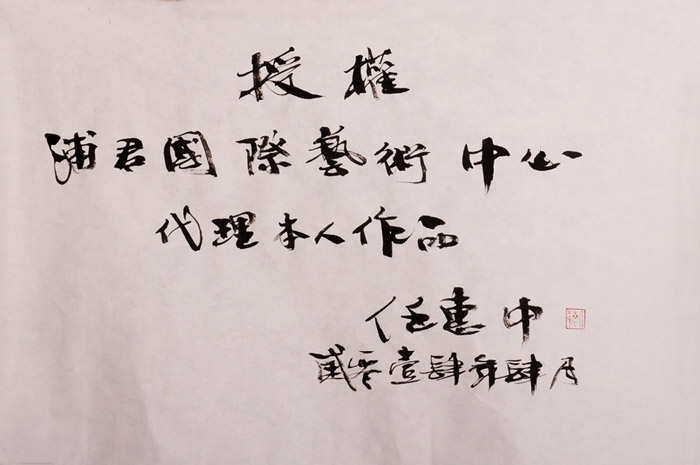 授權
浦君國際藝術中心
代理本人作品
任惠中
貳零壹肆年肆月